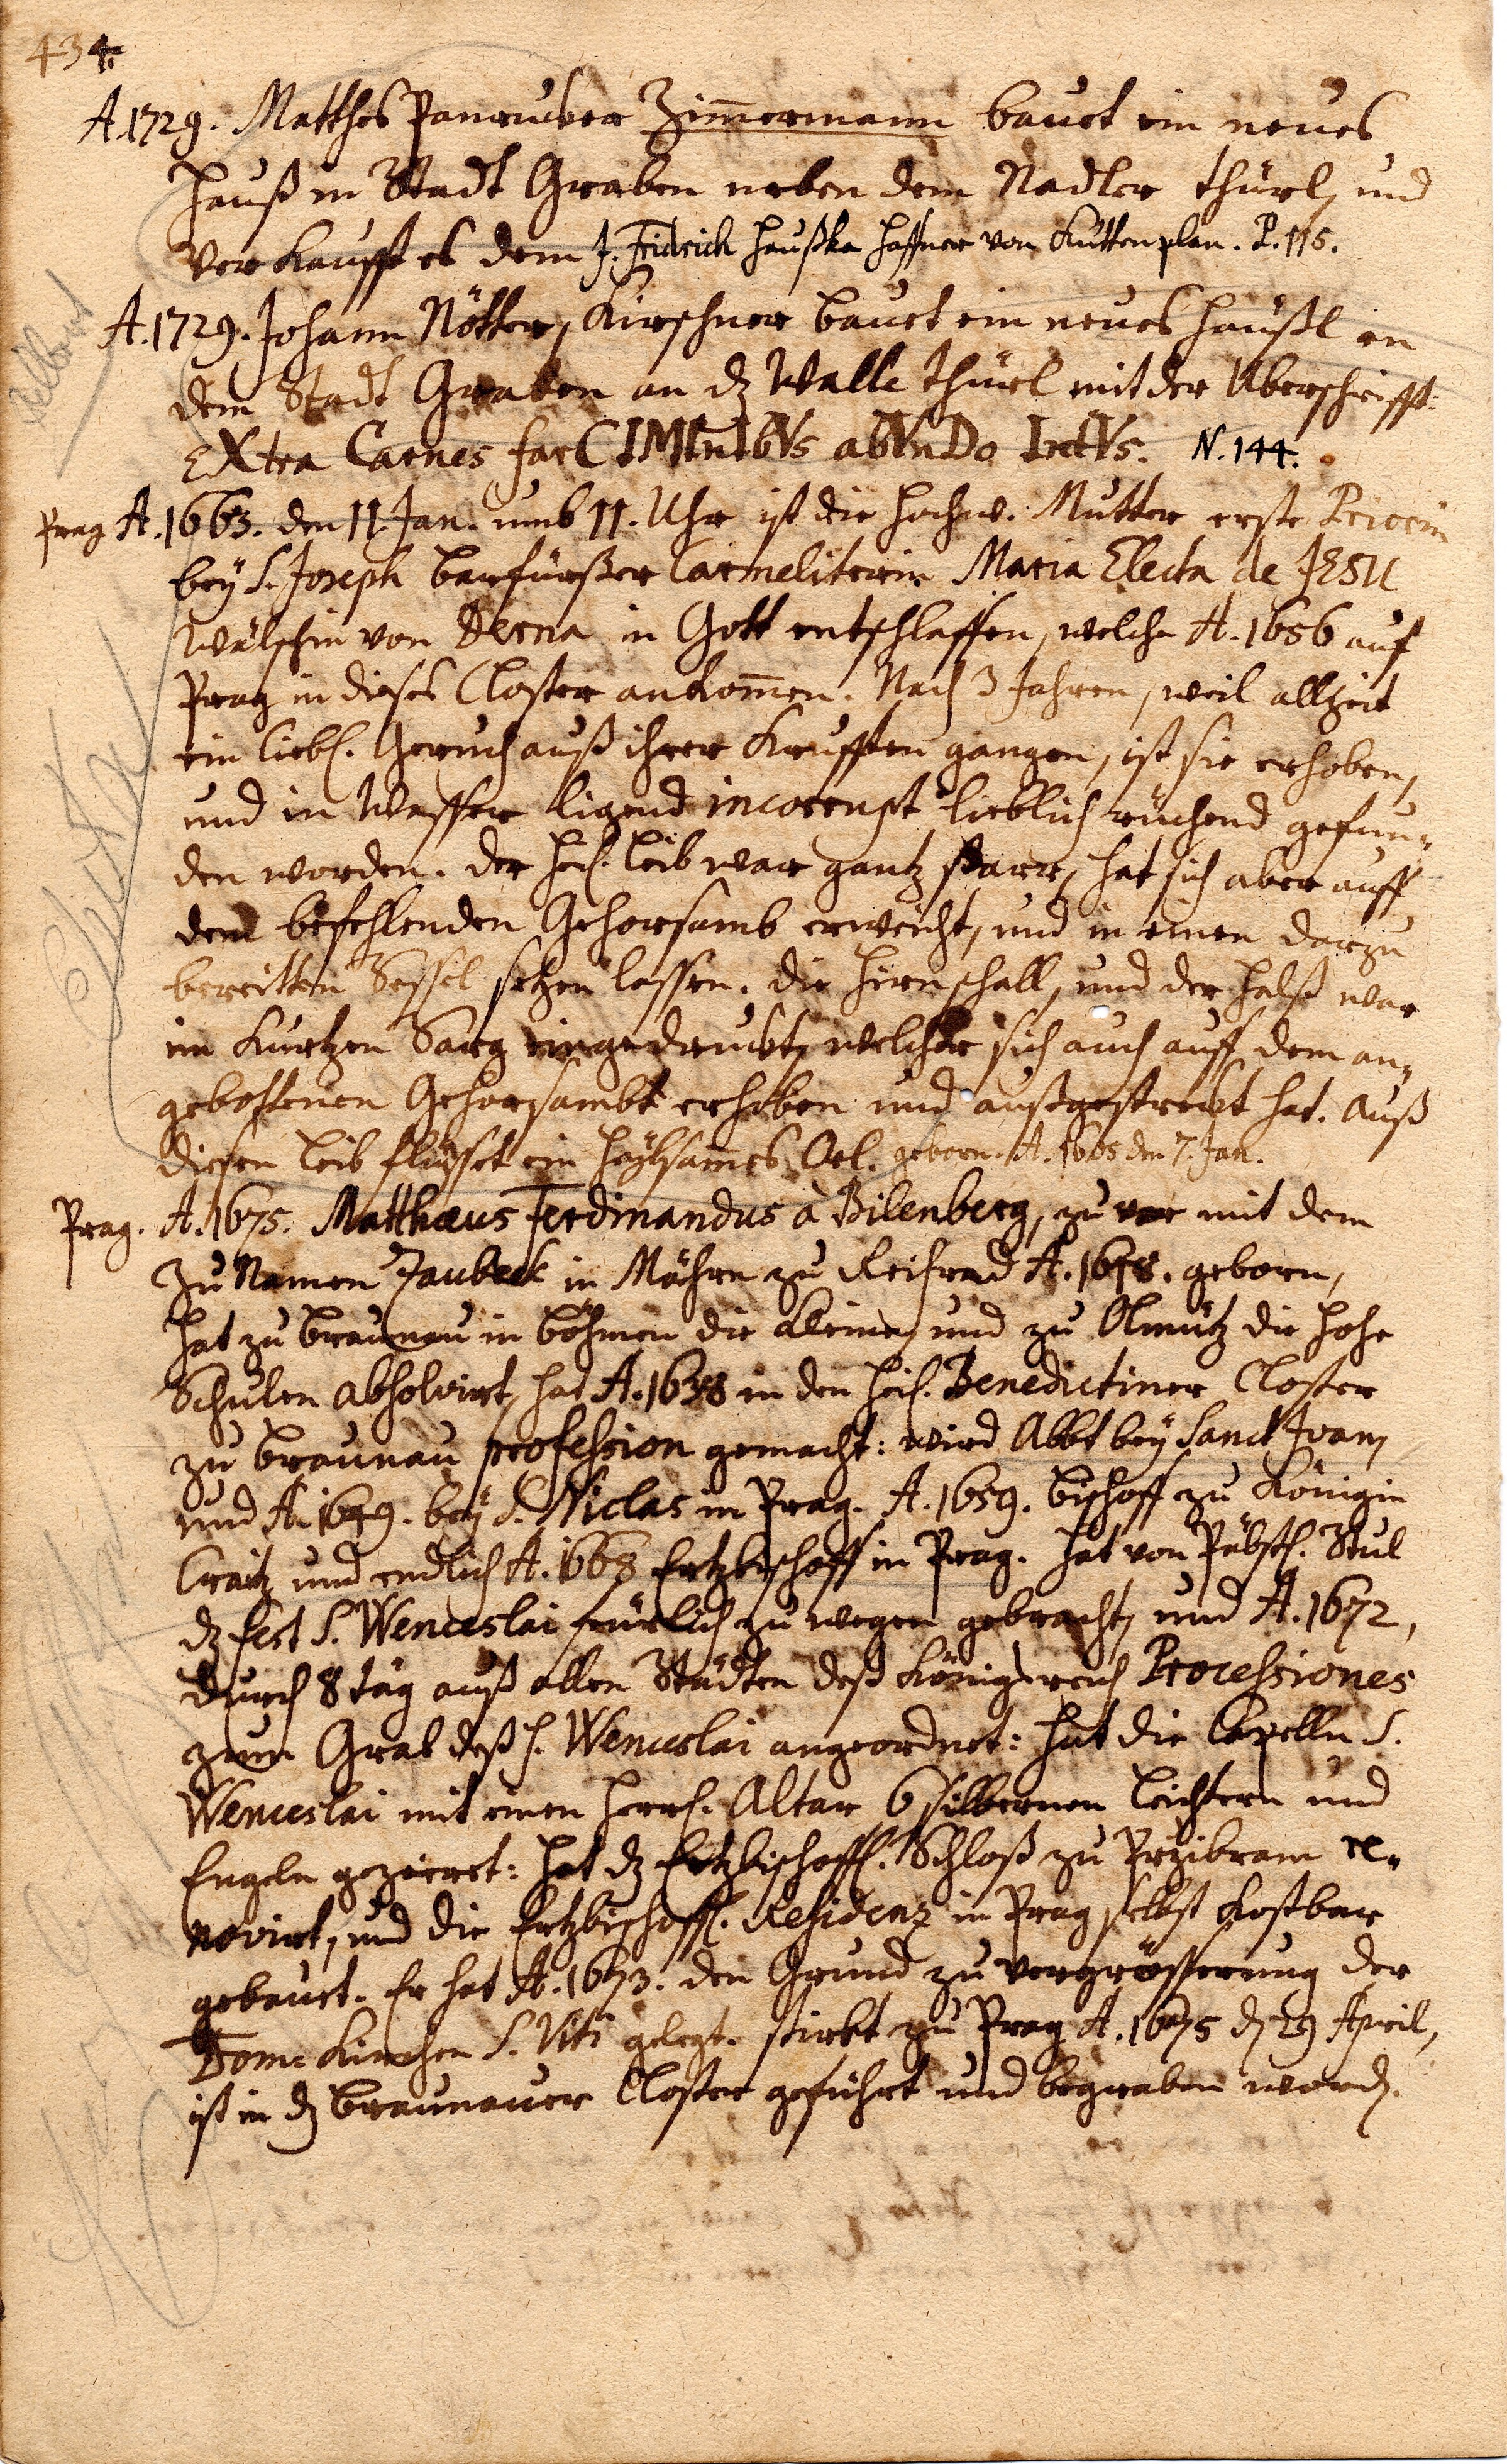 434.
A. 1729. Matthes Panrucker Zimmermann bauet ein neues
Hauß in Stadt Graben neben dem Nadler Thürl, und
verkaufft es dem J. Fridrich Haußka Haffner von Kuttenplan. P. 115.
A. 1729. Johann Nötter, Kirschner bauet ein neues Häußl in
dem Stadt Graben an dz Walle Thürl mit der Überschrifft:
EXtra Carnes farCIMInIbVs abVnDo IntVs. N. 144.
Prag A. 1663. den 11. Jan. umb 11. Uhr ist die Hochw. Mutter erste Priorin
bey S. Joseph barfüsser Carmeliterin Maria Electa de JESU
Wälschin von Terna in Gott entschlaffen, welche A. 1656 auf
Prag in dieses Closter ankommen. Nach 3 Jahren, weil allzeit
ein liebl. Geruch auß ihrer Krufften gangen, ist sie erhoben,
und in Wasser ligend incorrupt lieblich rüchend gefun-
den worden. Der heil. Leib war gantz starr, hat sich aber auff
dem befehlenden Gehorsamb erweicht, und in einen darzu
bereitten Sessel setzen lassen. Die Hirnschall, und der Halß war
im kurtzen Sarg eingedruckt, welcher sich auch auff dem an-
gebottenen Gehorsambt erhoben und außgestreckt hat. Auß
diesen Leib flüsset ein heylsames Oel. geborn. A. 1605 den 7. Jan.
Prag. A. 1675. Matthæus Ferdinandus à Bilenberg, zu vor mit dem
Zu Namen Zaubeck in Mähren zu Reihrad A. 1618. geborn,
hat zu Braunau in Böhmen die kleine, und zu Olmütz die hohe
Schulen absolvirt, hat A. 1638 in den heil. Benedictiner Closter
zu Braunau profession gemacht: wird Abbt bey Sanct Ivan,
und A. 1649. bey S. Niclas in Prag. A. 1659. Bischoff zu Königin
Craitz und endlich A. 1668 Ertzbischoff in Prag. Hat von Päbstl. Stul
dz Fest S. Wenceslai feürlich zu wegen gebracht, und A. 1672,
durch 8 täg auß allen Städten deß Königreich Processiones
zum Grab deß h. Wenceslai angeordnet: hat die Capelln S.
Wenceslai mit einen herrl. Altar 6 silbernen Leichtern und
Engeln gezieret: hat dz Ertzbischoffl. Schloß zu Przibram re-
novirt, und die Ertzbischoffl. Residenz in Prag selbst kostbar
gebauet. Er hat A. 1673. den Grund zu Vergrösserung der
Dome Kirchen S. Viti gelegt. stirbt zu Prag A. 1675 d. 29 April,
ist in dz Braunauer Closter geführt und begraben word.